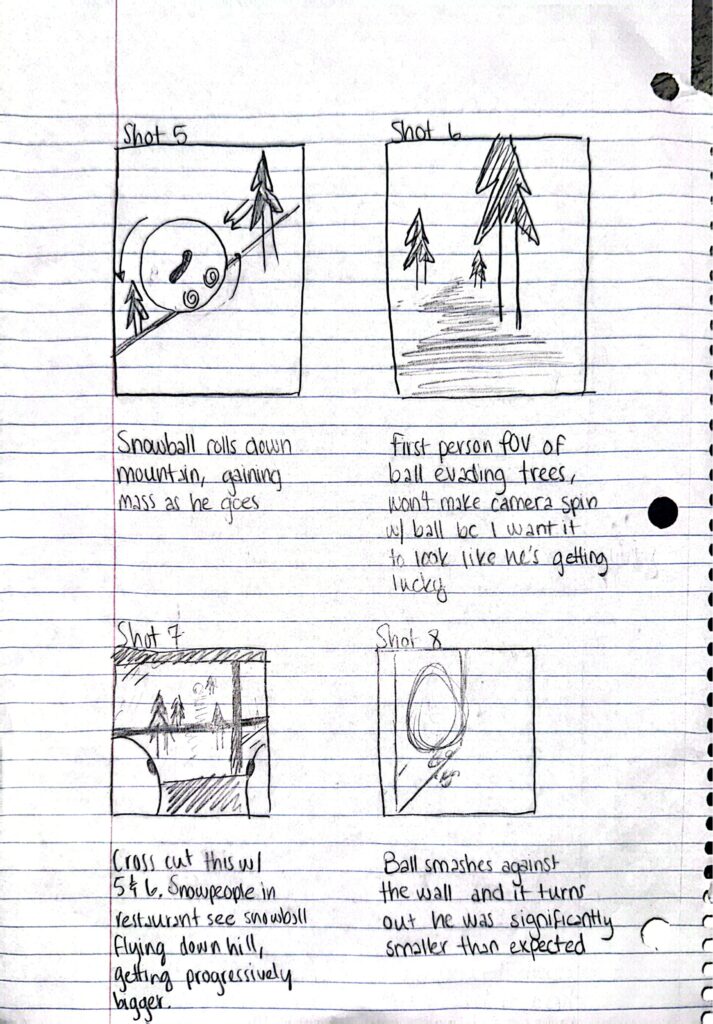 Shot 5
Snowball rolls down
mountain, gaining
mass as he goes
Shot 6
First person FOV of
ball evading trees,
won't make camera spin
w/ ball bc I want it
to look like he's getting
lucky
Shot 7
Cross cut this w/
5 & 6. Snowpeople in
restaurant see snowball
flying down hill,
getting progressively
bigger.
Shot 8
Ball smashes against
the wall and it turns
out he was significantly
smaller than expected